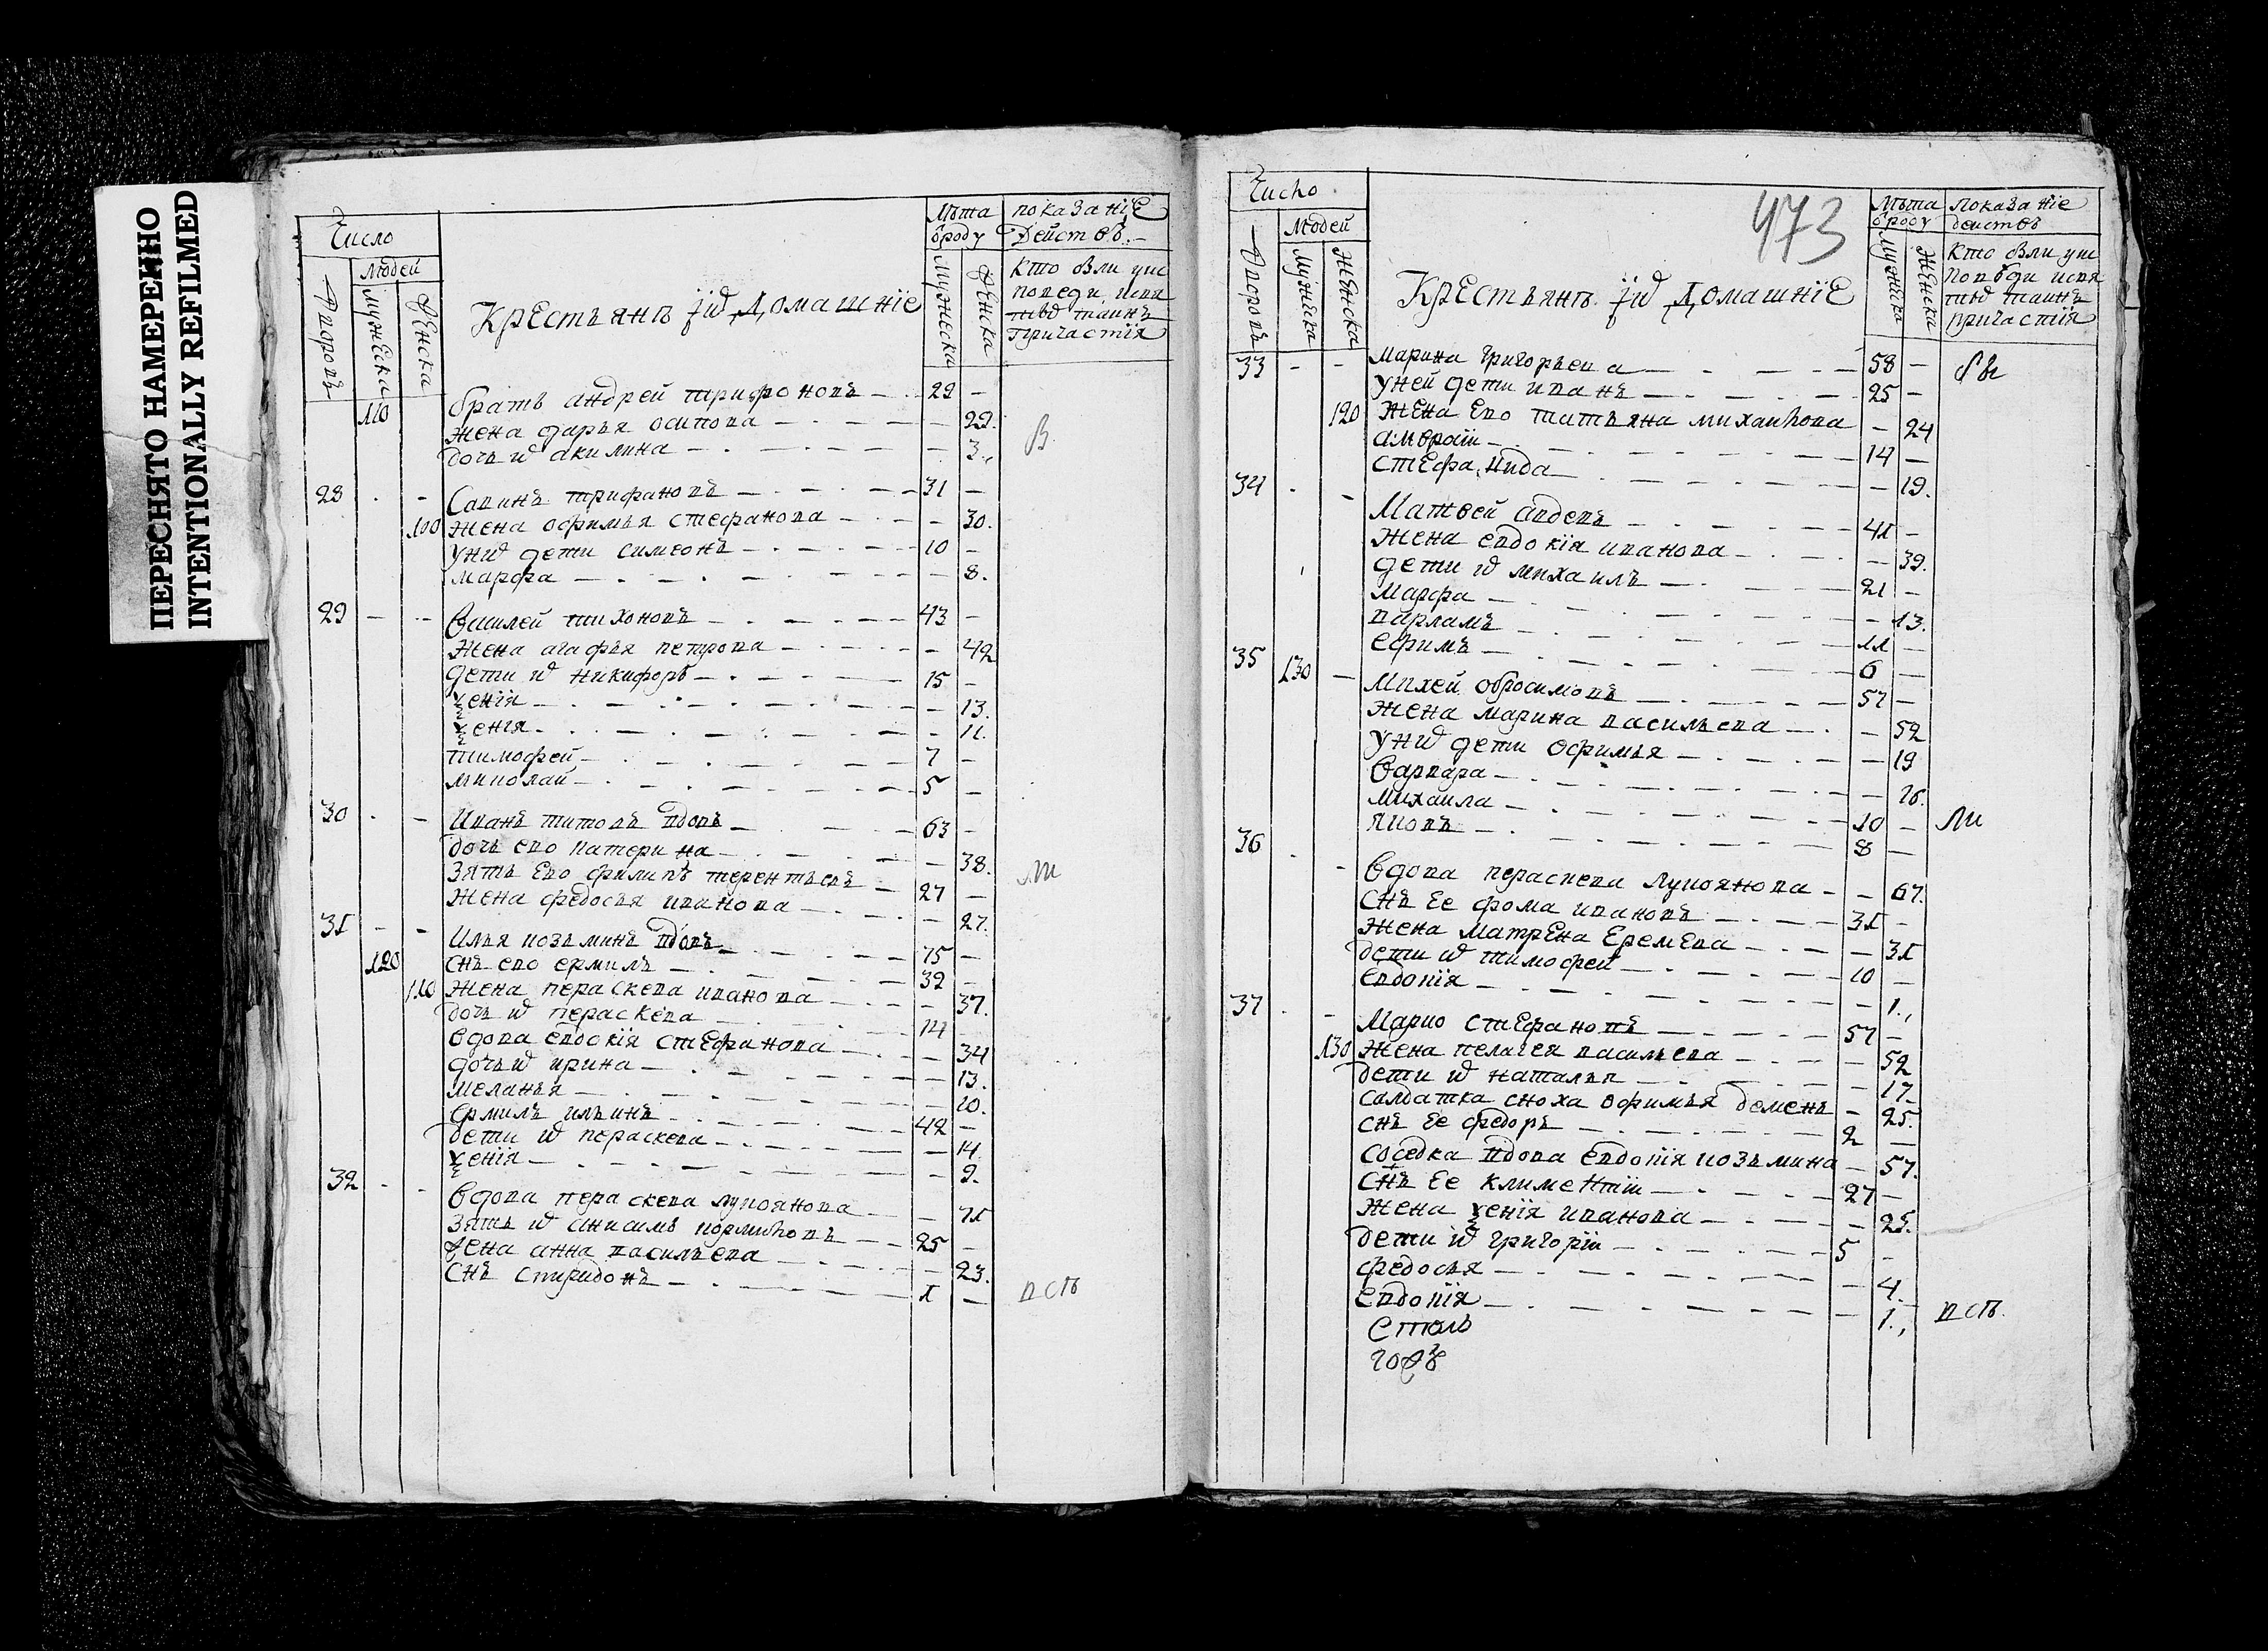 ПЕРЕСНЯТО НАМЕРЕННО
INTENTIONALLY REFILMED
Число
Людей
Дворовъ
Мужеска
Женска
Крестьянъ и их Домашніе
Лѣта
ѿроду
Мужеска
Женска
показаніе
Действъ
Кто были у ис
поведи и свя
тых таинъ
Причастія
братъ андрей трифоновъ — 29 —
110 жена дарья осипова — — 22.
дочь их акилина — — 3.
В
28 - - Савинъ трифановъ — 31 —
100 жена офимья стефанова — — 30.
у них дети симеонъ — 10 —
марфа — — 8.
29 - - Василей тихоновъ — 43 —
жена агафья петрова — — 42
дети их никифоръ — 15 —
ѯенія — — 13.
ѯенія — — 11.
тимофей — 7 —
миколай — 5 —
30 - - Иванъ титовъ вдовъ — 63 —
дочь ево катерина — — 38.
зять ево филипъ терентьевъ — 27 —
ли
жена федосья иванова — — 27.
31 - - Илья козьминъ вдовъ — 75 —
120 снъ ево ермилъ — 32 —
110 жена пераскева иванова — — 37.
дочь их пераскева — 14
вдова евдокія стефанова — — 34
дочь их ирина — — 13.
меланья — — 10.
ермилъ ильинъ — 42 —
дети их пераскева — — 14
ѯенія — — 9.
32 - - Вдова пераскева лукоянова — — 71
зять их анисимъ кормиловъ — 25 —
жена анна васильева — — 23.
снъ спиридонъ — 1 —
всѣ
473
Число
Людей
Дворовъ
Мужеска
Женска
Крестьянъ и их Домашніе
Лѣта
ѿроду
Мужеска
Женска
показаніе
действъ
Кто были у ис
поведи и свя
тых таинъ
причастія
33 - - марина григорьева — 58 —
бы
у ней дети иванъ — 25 —
120 жена ево татьяна михаилова — 24
амвросіи — 14 —
стефанида — — 19.
34 - - Матвей авдевъ — 41 —
жена евдокія иванова — — 39.
дети их михаилъ — 21 —
марфа — — 13.
варламъ — 11 —
ефимъ — 6 —
35 130 - Михей обросимовъ — 57 —
жена марина васильева — — 52
у них дети офимья — — 19
варвара — — 16.
михаила — 10 —
ли
яковъ — 8 —
36 - - Вдова пераскева лукоянова — — 67.
снъ ее фома ивановъ — 31 —
жена матрена еремева — — 31
дети их тимофей — 10 —
евдокія — — 1.
37 - - Марко стефановъ — 57 —
130 жена пелагея васильева — — 52
дети их наталья — — 17.
салдатка сноха офимья деменъ — 25.
снъ ее федоръ — 2 —
соседка вдова евдокія козьмина — 57.
снъ ее климентіи — 27 —
жена ѯенія иванова — — 25.
дети их григоріи — 5 —
федосья — — 4.
евдокія — — 1.
всѣ.
Столь